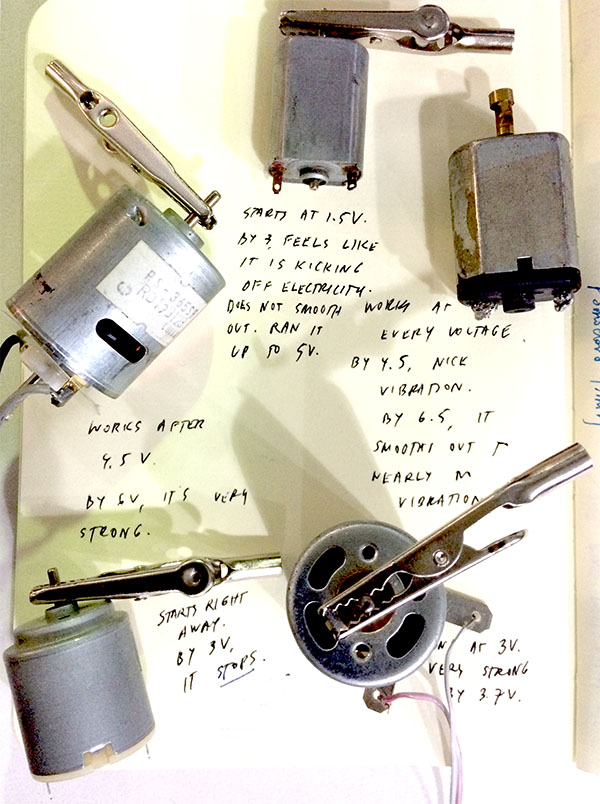 STARTS AT 1.5V.
BY 3, FEELS LIKE
IT IS KICKING
OFF ELECTRICITY.
DOES NOT SMOOTH
OUT. RAN IT
UP TO 5V.
WORKS AT
EVERY VOLTAGE.
BY 4.5, NICE
VIBRATION.
BY 6.5, IT
SMOOTHS OUT
NEARLY NO
VIBRATION
WORKS AFTER
4.5 V.
BY 6V, IT'S VERY
STRONG.
STARTS RIGHT
AWAY.
BY 3V,
IT STOPS.
AT 3V.
VERY STRONG
BY 3.7V.